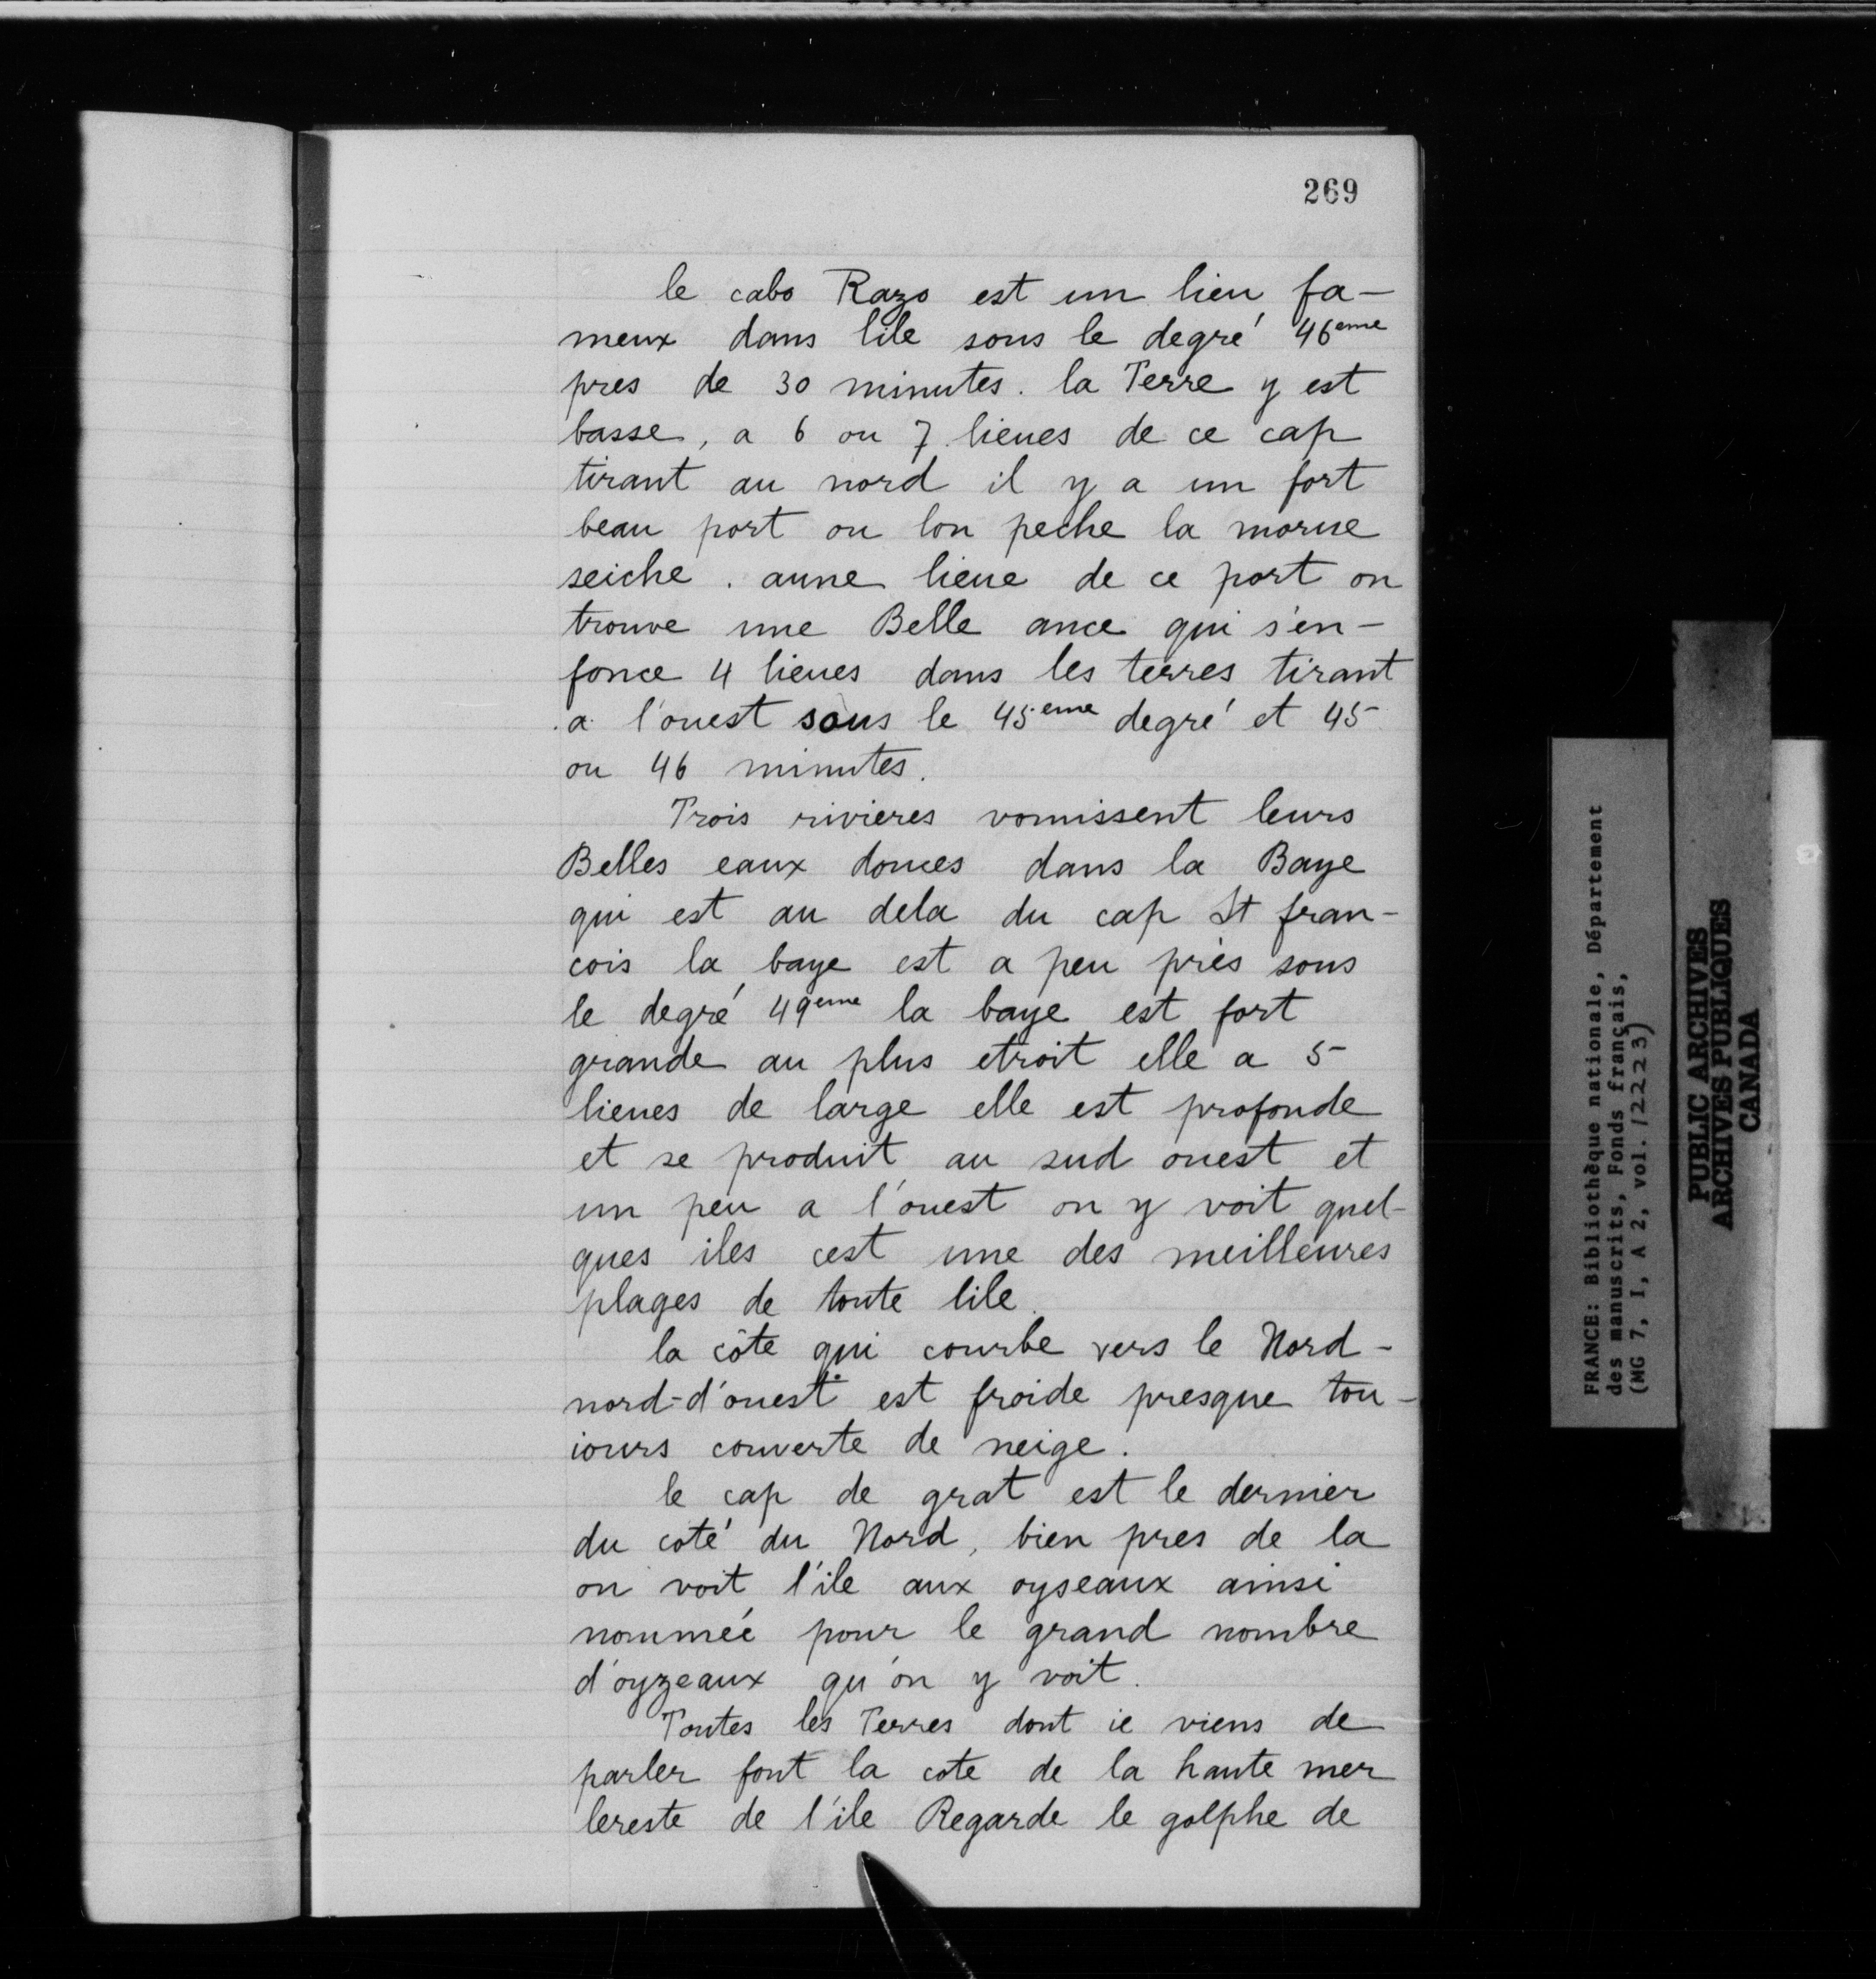 269
le cabo Razo est un lieu fa-
meux dans lile sous le degré 46eme
pres de 30 minutes. la Terre y est
basse, a 6 ou 7 lieues de ce cap
tirant au nord il y a un fort
beau port ou lon peche la morue
seiche. aune lieue de ce port on
trouve une Belle ance qui s'en-
fonce 4 lieues dans les terres tirant
a l'ouest sous le 45eme degré et 45
ou 46 minutes.
Trois rivieres vomissent leurs
Belles eaux douces dans la Baye
qui est au dela du cap St fran-
cois la baye est a peu près sous
le degré 49eme la baye est fort
grande au plus etroit elle a 5
lieues de large elle est profonde
et se produit au sud ouest et
un peu a l'ouest on y voit quel-
ques iles cest une des meilleures
plages de toute lile.
la côte qui courbe vers le Nord-
nord-d'ouest est froide presque tou-
iours couverte de neige.
le cap de grat est le dernier
du coté du Nord, bien pres de la
on voit l'ile aux oyseaux ainsi
nommée pour le grand nombre
d'oyzeaux qu'on y voit.
Toutes les Terres dont ie viens de
parler font la cote de la haute mer
lereste de l'ile Regarde le golphe de
FRANCE: Bibliothèque nationale, Département
des manuscrits, Fonds français,
(MG 7, I, A 2, vol. 12223)
PUBLIC ARCHIVES
ARCHIVES PUBLIQUES
CANADA